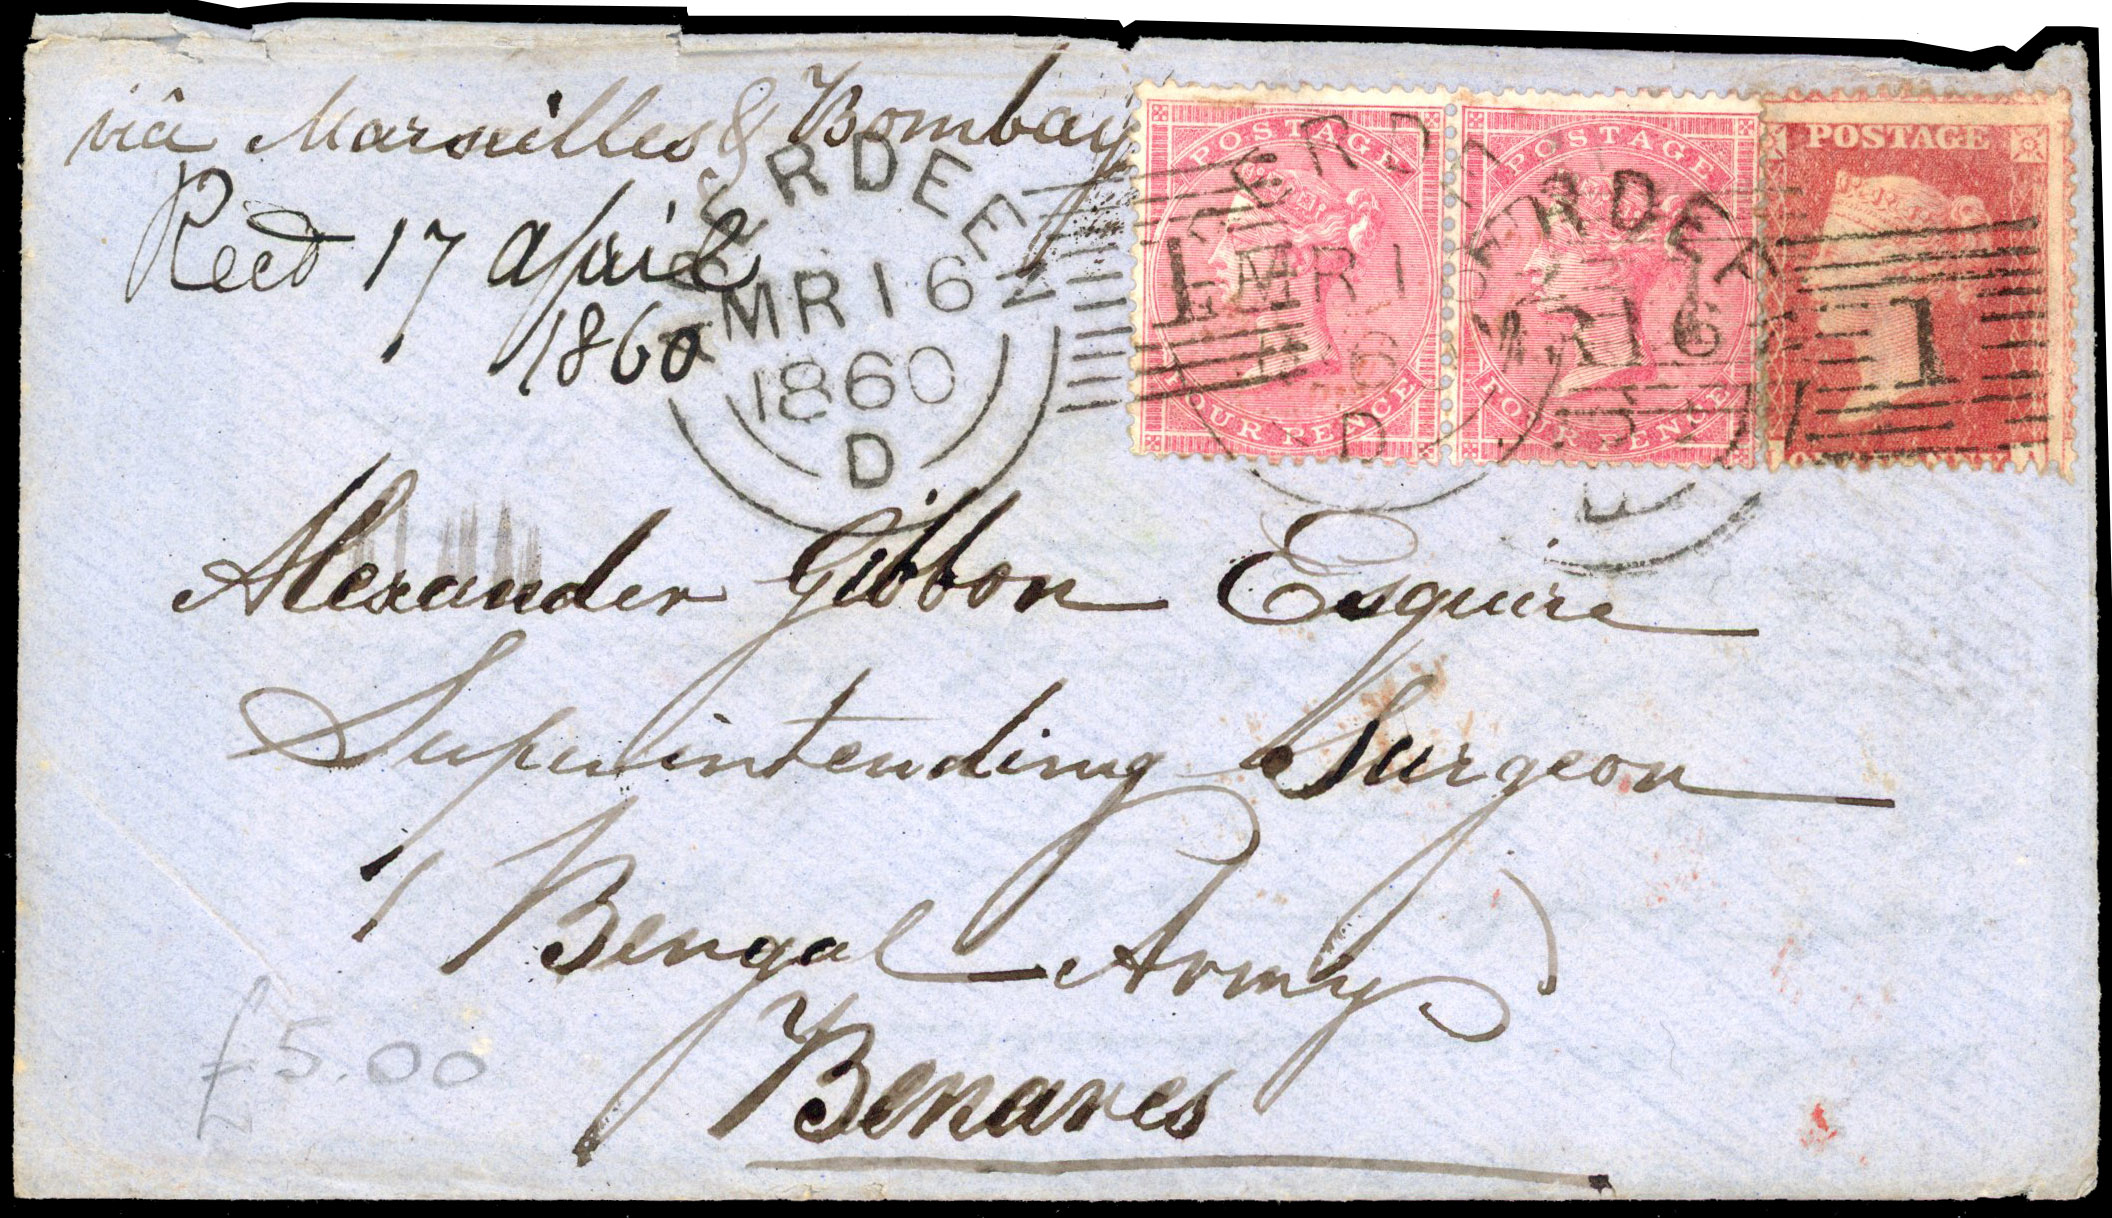 viâ Marseilles & Bombay
Recd 17 April
1860
ABERDEEN
MR 16
1860
D
1
POSTAGE
FOUR PENCE
POSTAGE
FOUR PENCE
ERDEE
MR 16
60
D
ERDEE
MR 16
POSTAGE
1
Alexander Gibbon Esquire
Superintending Surgeon
Bengal Army
Benares
£5.00